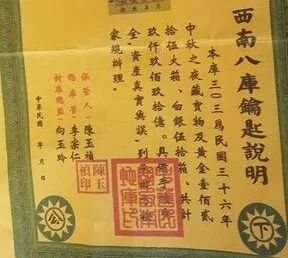 西南八庫鑰匙說明
本庫三〇三為民國三十六年
中秋之夜藏貨物及黃金壹佰貳
拾伍大箱、白銀伍拾箱、共計
玖仟玖佰玖拾億。具憑
全“資產真實無誤”利
家規辦理。
保管人：陳玉禎
總庫管：李宗仁
封庫總監：向玉玲
中華民國 年 月 日
陳玉禎印
下
公